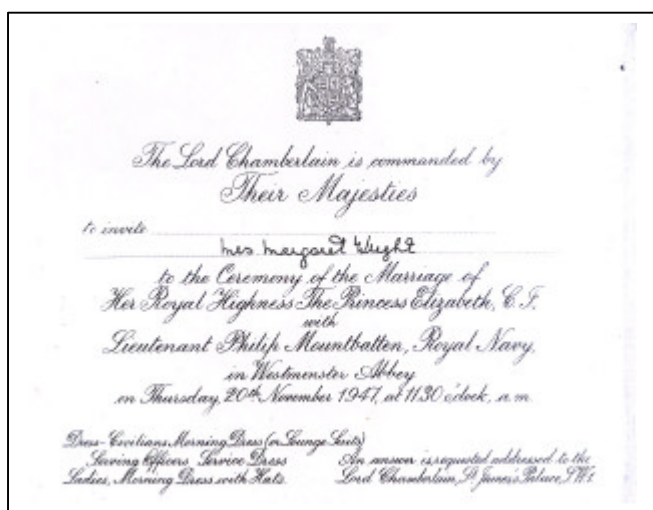 The Lord Chamberlain is commanded by
Their Majesties
to invite
Mrs Margaret Wright
to the Ceremony of the Marriage of
Her Royal Highness The Princess Elizabeth, C.I.
with
Lieutenant Philip Mountbatten, Royal Navy,
in Westminster Abbey
on Thursday, 20th November 1947, at 11.30 o'clock, a.m.
Dress-Civilians, Morning Dress (or Lounge Suits)
Serving Officers, Service Dress
Ladies, Morning Dress with Hats.
An answer is requested addressed to the
Lord Chamberlain, St James's Palace, S.W.1